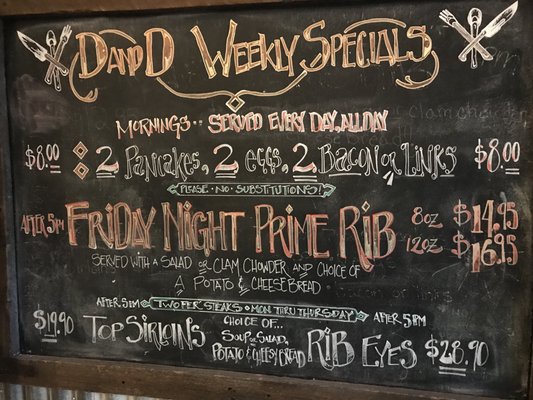 D AND D WEEKLY SPECIALS
MORNINGS.. SERVED EVERY DAY, ALL DAY
$8.00 2 PANCAKES, 2 EGGS, 2 BACON OR LINKS $8.00
PLEASE · NO · SUBSTITUTIONS!
AFTER 5PM FRIDAY NIGHT PRIME RIB 8oz $14.95
12oz $16.95
SERVED WITH A SALAD OR CLAM CHOWDER AND CHOICE OF
A POTATO & CHEESE BREAD.
AFTER 5PM TWO PER STEAKS · MON THRU THURSDAY AFTER 5PM
$19.90 TOP SIRLOINS CHOICE OF... SOUP OR SALAD, POTATO & CHEESY BREAD RIB EYES $28.90